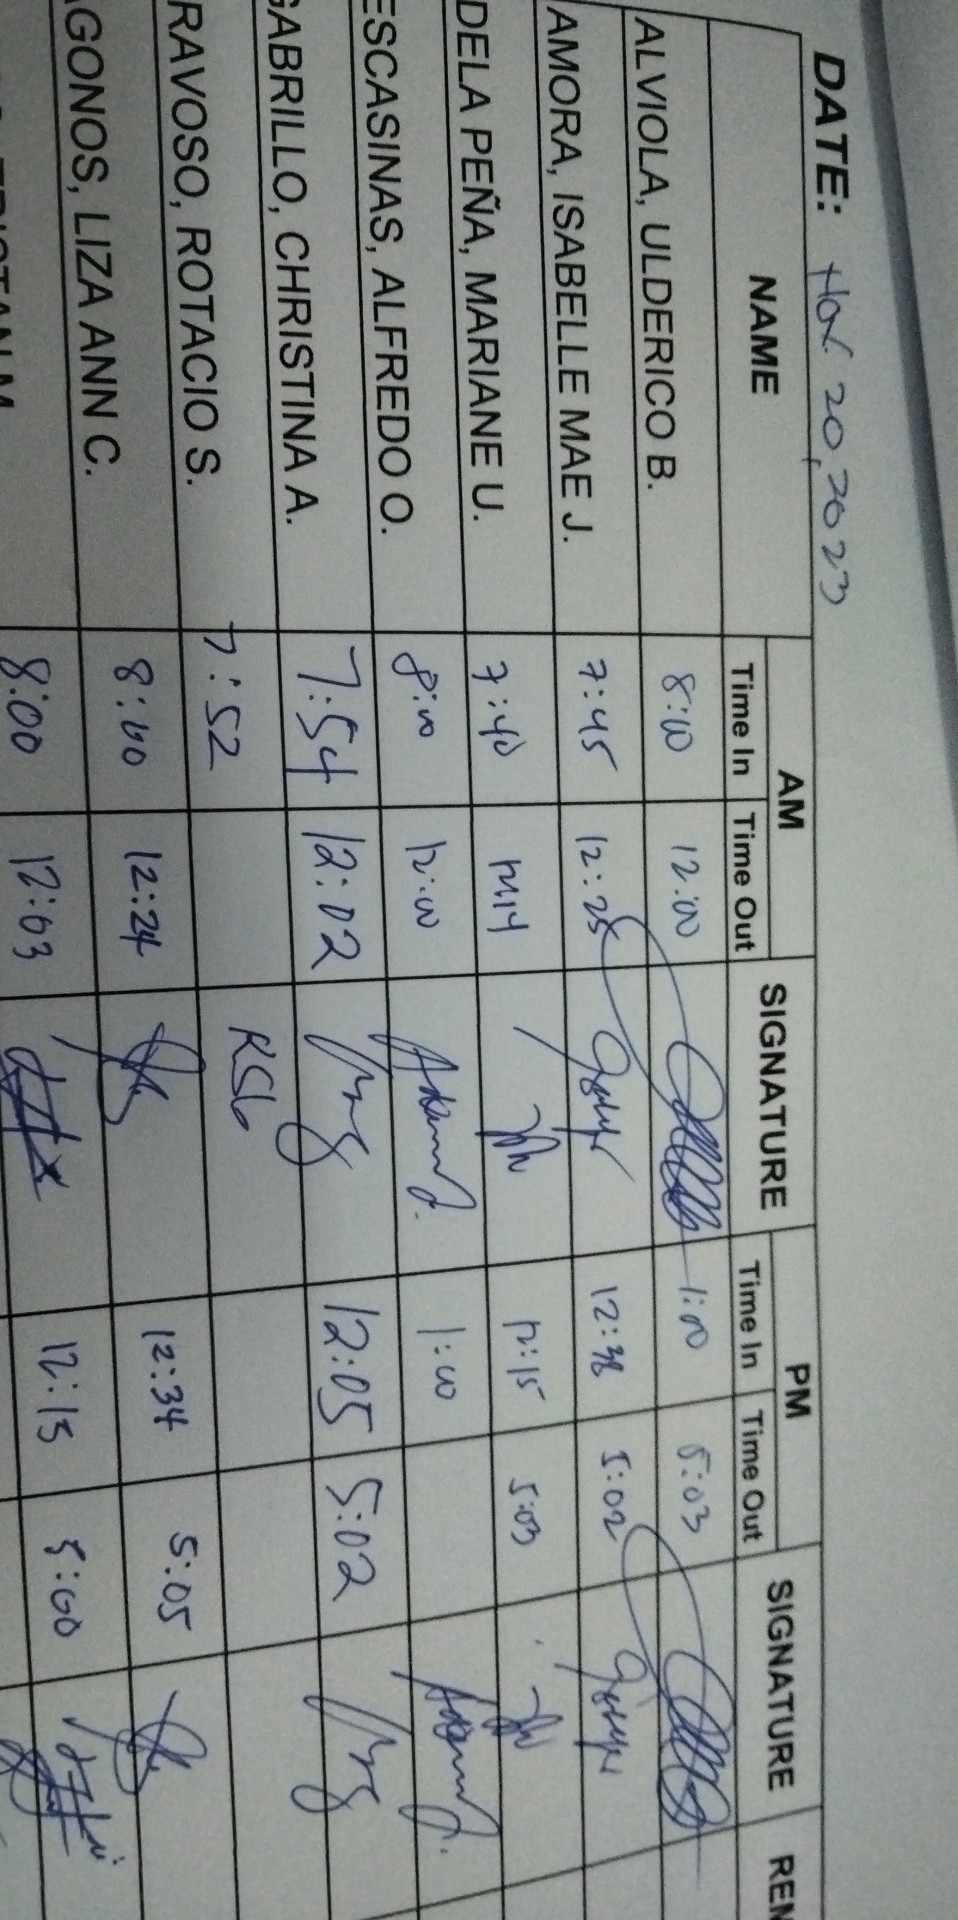 DATE: Nov 20, 2023
NAME AM SIGNATURE PM SIGNATURE REM
Time In Time Out Time In Time Out
ALVIOLA, ULDERICO B. 8:00 12:00 1:00 5:03
AMORA, ISABELLE MAE J. 7:45 12:25 12:38 5:02
DELA PEÑA, MARIANE U. 7:40 12:14 12:15 5:03
ESCASINAS, ALFREDO O. 8:00 12:00 1:00
GABRILLO, CHRISTINA A. 7:54 12:02 12:05 5:02
RAVOSO, ROTACIO S. 7:52 RSG
AGONOS, LIZA ANN C. 8:00 12:24 12:34 5:05
8:00 12:03 12:15 5:00